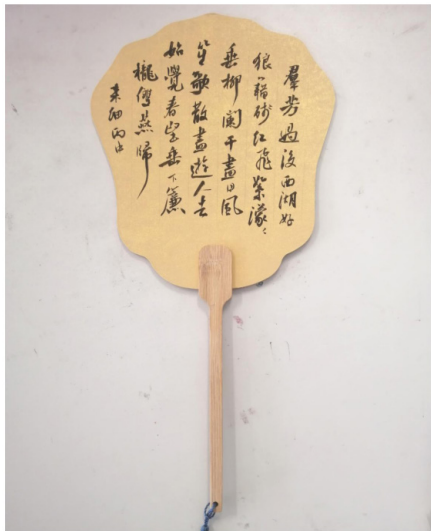 羣芳過後西湖好
狼藉残红飛絮濛〻
垂柳闌干盡日風
笙歌散盡遊人去
始覺春空垂下簾
櫳雙燕歸
来细雨中